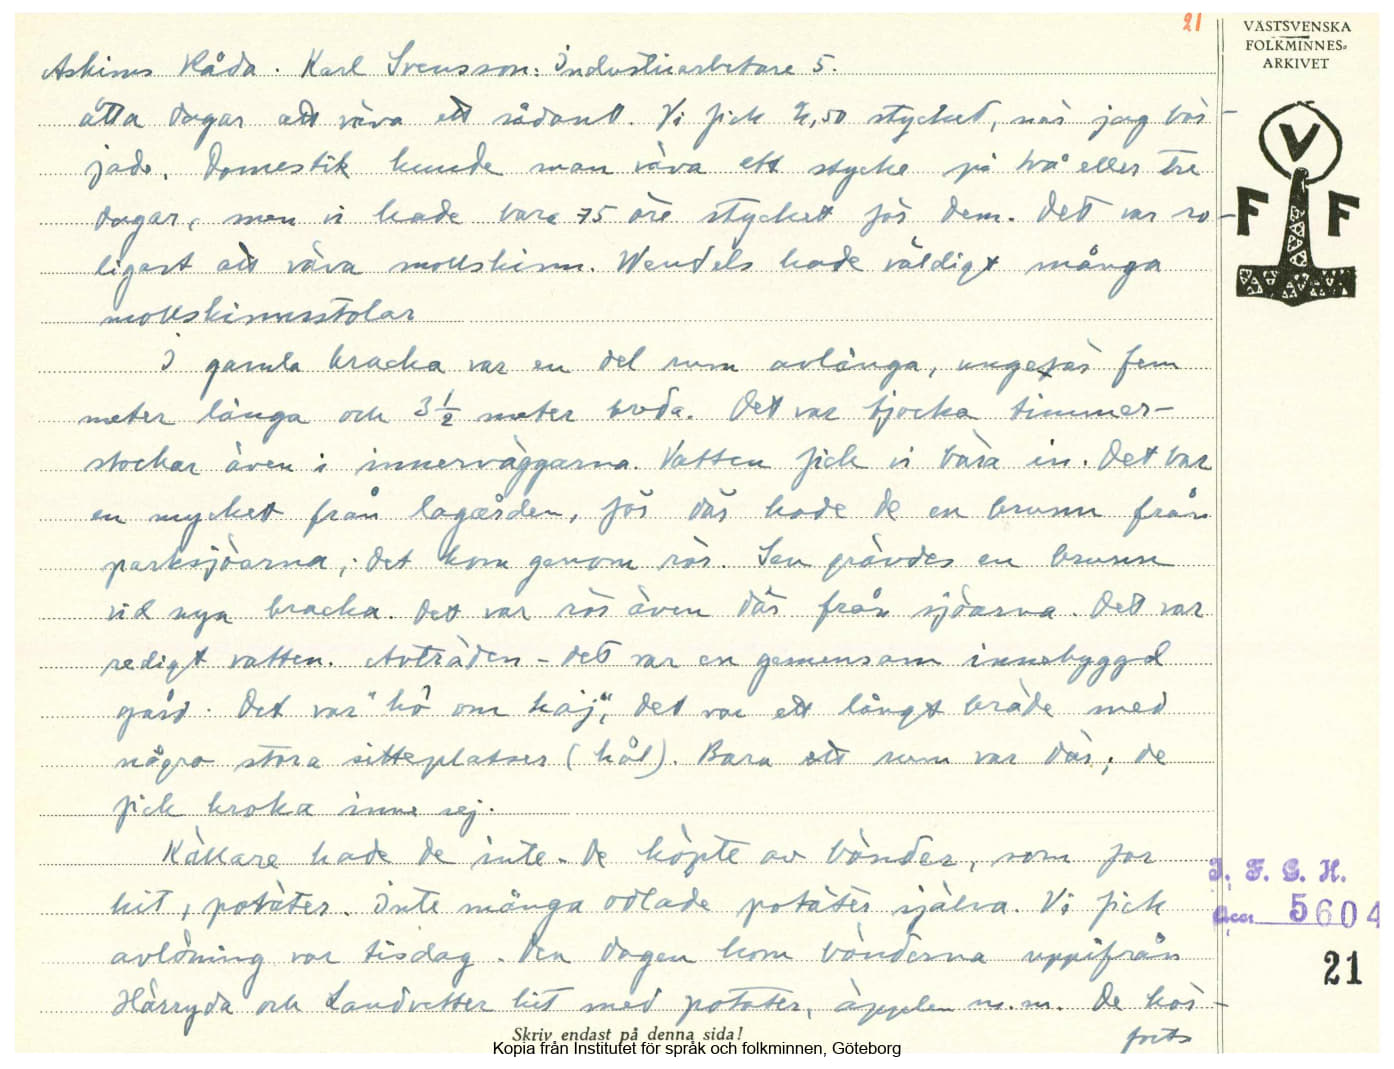 21
VÄSTSVENSKA
FOLKMINNES-
ARKIVET
V
F F
Askims Råda. Karl Svensson. Industriarbetare 5.
åtta dagar att väva ett sådant. Vi fick 4,50 stycket, när jag bör-
jade. Domestik kunde man väva ett stycke på två eller tre
dagar, men vi hade bara 75 öre stycket för dem. Det var ro-
ligast att väva mollskinn. Wendels hade väldigt många
mollskinnsstolar
I gamla bracka var en del rum avlånga, ungefär fem
meter långa och 3 1/2 meter breda. Det var tjocka timmer-
stockar även i innerväggarna. Vatten fick vi bära in. Det bar
en mycket från lagården, för där hade de en brunn från
parksjöarna, det kom genom rör. Sen grävdes en brunn
vid nya bracka. Det var rör även där från sjöarna. Det var
redigt vatten. Avträden - det var en gemensam innebyggd
gård. Det var "hö om haj", det var ett långt bräde med
några stora sitteplatser (hål). Bara ett rum var där, de
fick kroka inne sej.
Källare hade de inte. De köpte av bönder, som for
hit, potäter. Inte många odlade potäter själva. Vi fick
avlöning var tisdag. Den dagen kom bönderna uppifrån
Härryda och Landvetter hit med potater, äpplen m.m. De kör-
forts
I. F. G. H.
Acc. 5604
21
Skriv endast på denna sida!
Kopia från Institutet för språk och folkminnen, Göteborg